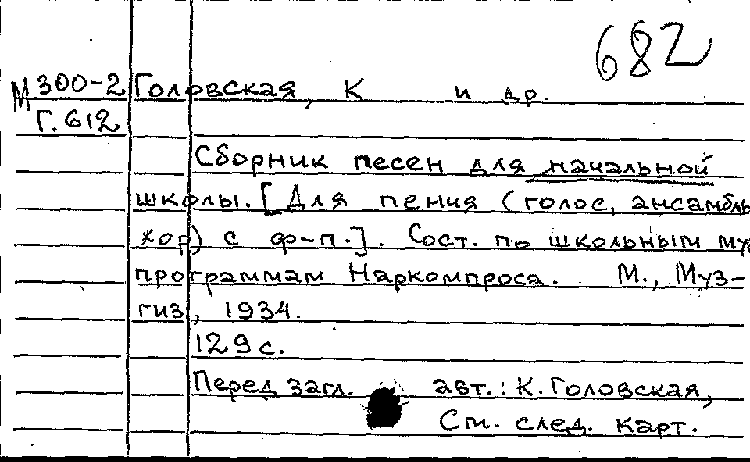 682
М 300-2 Головская, К и др.
Г. 612
Сборник песен для начальной
школы. [Для пения (голос, ансамбль
хор) с ф-п.]. Сост. по школьным му
программам Наркомпроса. М., Муз-
гиз, 1934.
129 с.
Перед загл. авт.: К. Головская,
См. след. карт.